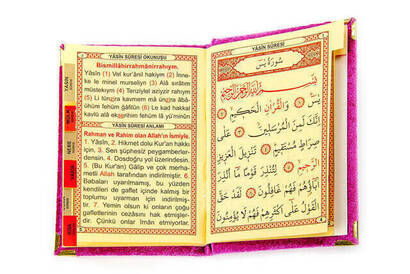 YÂSİN SÛRESİ OKUNUŞU
Bismillâhirrahmânirrahıym.
Yâsîn (1) Vel kur'ânil hakiym (2) İnne-
ke le minel murseliyn (3) Alâ sırâtın
müstekiym (4) Tenziylel aziyzir rahıym
(5) Li tünzira kavmem mâ ünzira âbâ-
ühüm fehüm ğâfilûn (6) Le kad hakkal
kavlü alâ ekserihim fehüm lâ yü'minûn
YÂSİN SÛRESİ ANLAMI
Rahman ve Rahim olan Allah'ın İsmiyle.
1. Yâsîn, 2. Hikmet dolu Kur'an hakkı
için, 3. Sen şüphesiz peygamberler-
densin, 4. Dosdoğru yol üzerindesin.
5. (Bu Kur'an) Gâlip ve çok merha-
metli Allah tarafından indirilmiştir. 6.
Babaları uyarılmamış, bu yüzden
kendileri de gaflet içinde kalmış bir
toplumu uyarman için indirilmiş-
tir. 7. Yemin olsun ki onların çoğu
gafletlerinin cezasını hak etmişler-
dir. Çünkü onlar îman etmiyorlar.
YÂSİN
SÛRESİ
MÜLK
NEBE
YÂSİN SÛRESİ
سُورَةُ يٰسٓ
بِسْمِ اللّٰهِ الرَّحْمٰنِ الرَّحِيمِ
يٰسٓ ﴿١﴾ وَالْقُرْاٰنِ الْحَكِيمِ ﴿٢﴾
اِنَّكَ لَمِنَ الْمُرْسَلِينَ ﴿٣﴾ عَلٰى
صِرَاطٍ مُسْتَقِيمٍ ﴿٤﴾ تَنْزِيلَ الْعَزِيزِ
الرَّحِيمِ ﴿٥﴾ لِتُنْذِرَ قَوْمًا مَٓا اُنْذِرَ
اٰبَٓاؤُ۬هُمْ فَهُمْ غَافِلُونَ ﴿٦﴾ لَقَدْ حَقَّ
الْقَوْلُ عَلٰٓى اَكْثَرِهِمْ فَهُمْ لَا يُؤْمِنُونَ